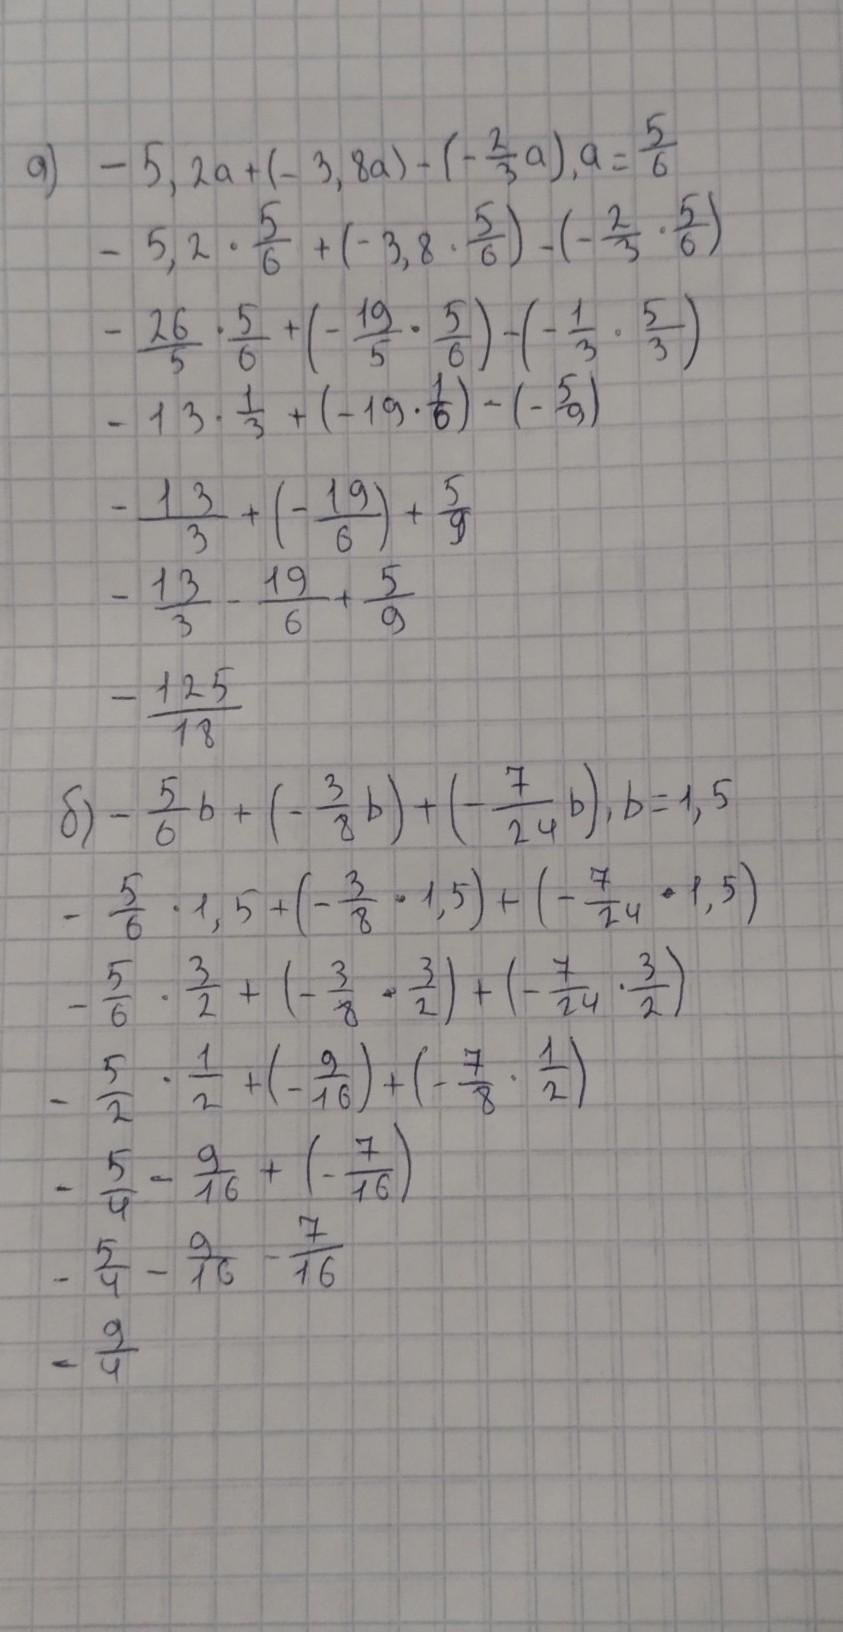 а) - 5,2a + (- 3,8a) - (- 2/3 a), a = 5/6
- 5,2 · 5/6 + (- 3,8 · 5/6) - (- 2/3 · 5/6)
- 26/5 · 5/6 + (- 19/5 · 5/6) - (- 1/3 · 5/3)
- 13 · 1/3 + (- 19 · 1/6) - (- 5/9)
- 13/3 + (- 19/6) + 5/9
- 13/3 - 19/6 + 5/9
- 125/18
б) - 5/6 b + (- 3/8 b) + (- 7/24 b), b = 1,5
- 5/6 · 1,5 + (- 3/8 · 1,5) + (- 7/24 · 1,5)
- 5/6 · 3/2 + (- 3/8 · 3/2) + (- 7/24 · 3/2)
- 5/2 · 1/2 + (- 9/16) + (- 7/8 · 1/2)
- 5/4 - 9/16 + (- 7/16)
- 5/4 - 9/16 - 7/16
- 9/4